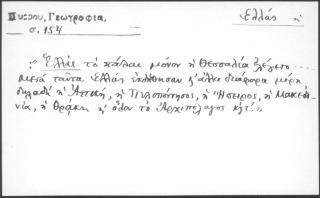 Πύρρου, Γεωγραφία.
σ. 154
Ἑλλάς ἡ
:"Ἑλλάς τὸ πάλαι μόνον ἡ Θεσσαλία ἐλέγετο...
μετὰ ταῦτα Ἑλλάς ἐκλήθησαν κ' ἄλλα διάφορα μέρη
δηλαδή ἡ Ἀττική, ἡ Πελοπόννησος, ἡ Ἤπειρος, ἡ Μακεδο-
νία, ἡ Θράκη κ' ὅλον τὸ Ἀρχιπέλαγος κτλ."